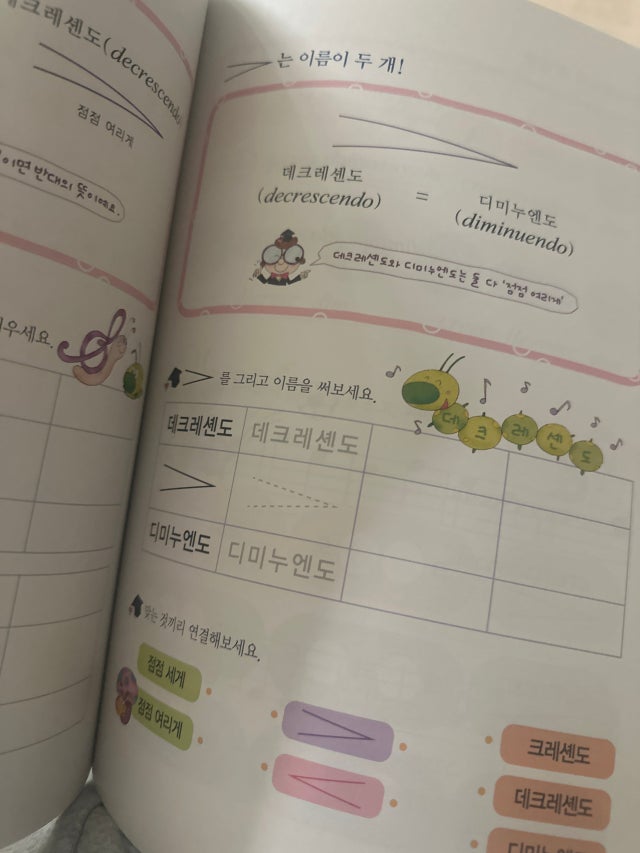 데크레셴도(decrescendo)
점점 여리게
이면 반대의 뜻이에요.
우세요.
는 이름이 두 개!
데크레셴도
(decrescendo)
=
디미누엔도
(diminuendo)
데크레셴도와 디미누엔도는 둘 다 '점점 여리게'
를 그리고 이름을 써보세요.
데크레셴도
데크레셴도 데크레셴도
디미누엔도 디미누엔도
맞는 것끼리 연결해보세요.
점점 세게
점점 여리게
크레셴도
데크레셴도
디미누엔도